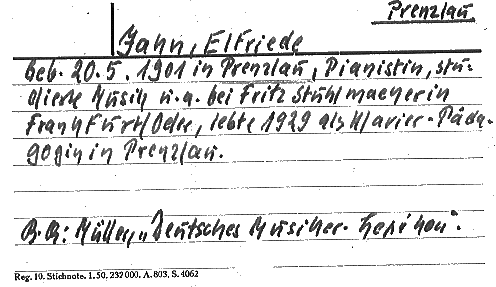 Prenzlau
Jahn, Elfriede
Geb. 20.5.1901 in Prenzlau, Pianistin, stu-
dierte Musik u.a. bei Fritz Stuhlmacher in
Frankfurt/Oder, lebte 1929 als Klavier-Päda-
gogin in Prenzlau.
Müller, „Deutsches Musiker-Lexikon".
Reg. 10. Stichnote. 1.50. 232000. A. 803. S. 4062